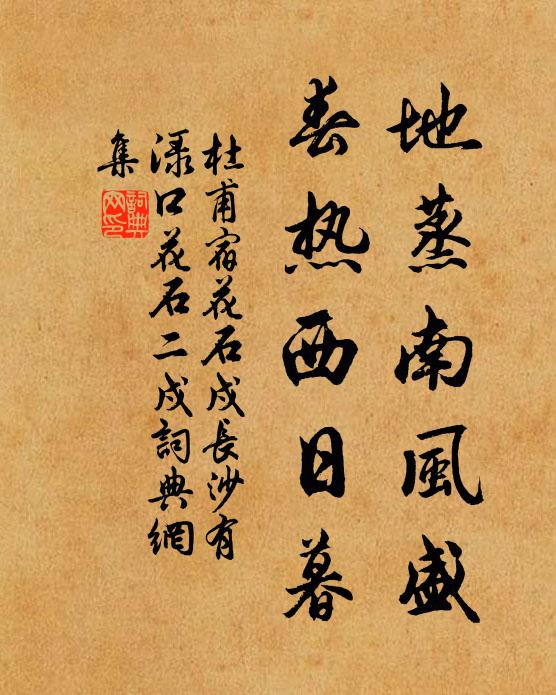 地蒸南風盛
春热西日暮
杜甫宿花石戍長沙有
渌口花石二戍詞典網
集
詞典
网印